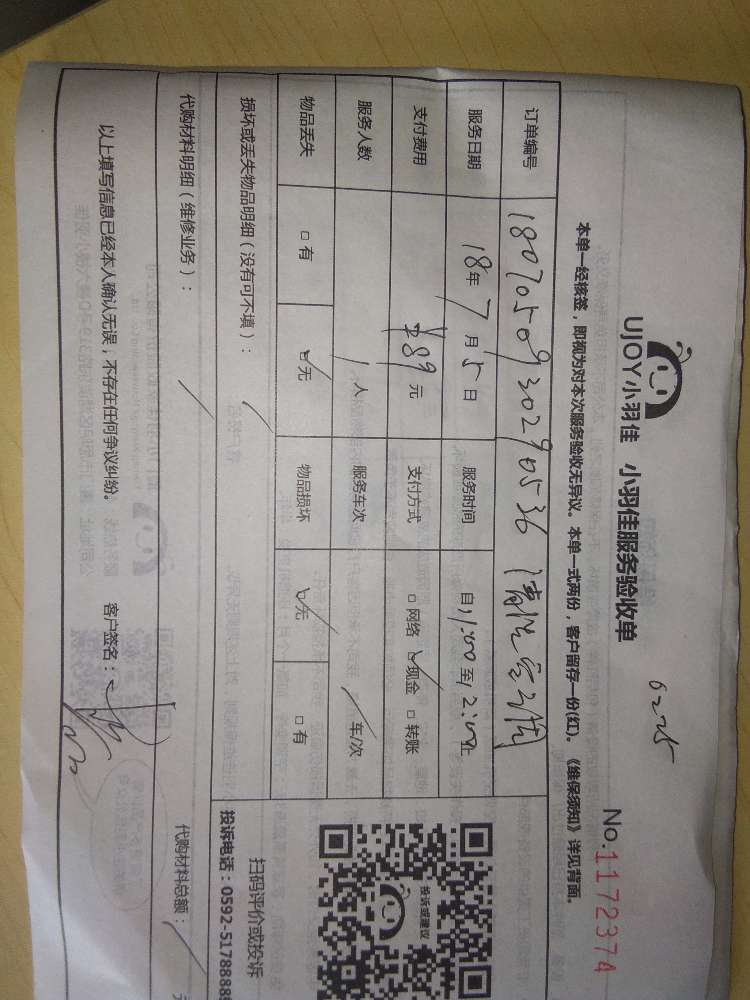 6225
UJOY小羽佳 小羽佳服务验收单 No.1172374
本单一经核签，即视为对本次服务验收无异议。本单一式两份，客户留存一份(红)。《维保须知》详见背面。
订单编号 1807050930290536 清洗空调
服务日期 18年7月5日 服务时间 自11:00至12:00止
支付费用 ¥89元 支付方式 □网络 ☑现金 □转账
服务人数 1人 服务车次 / 车/次
物品丢失 □有 ☑无 物品损坏 ☑无 □有
损坏或丢失物品明细（没有可不填）： /
代购材料明细（维修业务）： / 代购材料总额： / 元
以上填写信息已经本人确认无误，不存在任何争议纠纷。 客户签名：
投诉或建议
扫码评价或投诉
投诉电话：0592-5178888